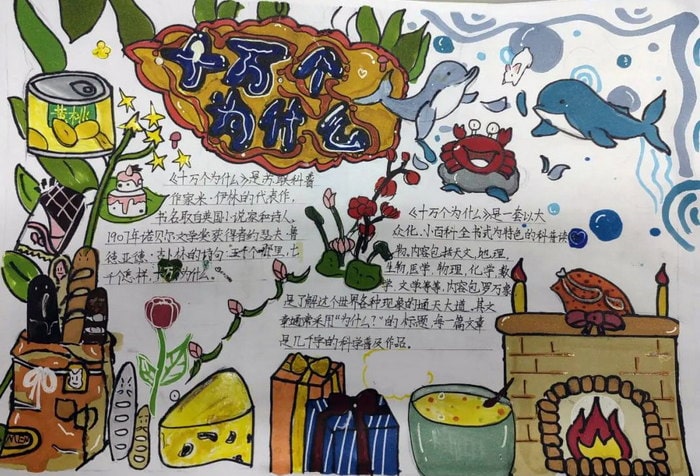 十万个
为什么
黄桃
《十万个为什么》是苏联科普
作家米·伊林的代表作，
书名取自英国小说家和诗人，
1907年诺贝尔文学奖获得者约瑟夫·鲁
德亚德·吉卜林的诗句"五千个哪里，七
千个怎样，十万个为什么。
《十万个为什么》是一套以大
众化、小百科全书式为特色的科普读
物，内容包括天文，地理，
生物，医学，物理，化学，数
学，文学等等，内容包罗万象
是了解这个世界各种现象的通天大道，其文
章通常采用"为什么？"的标题，每一篇文章
是几千字的科学普及作品。